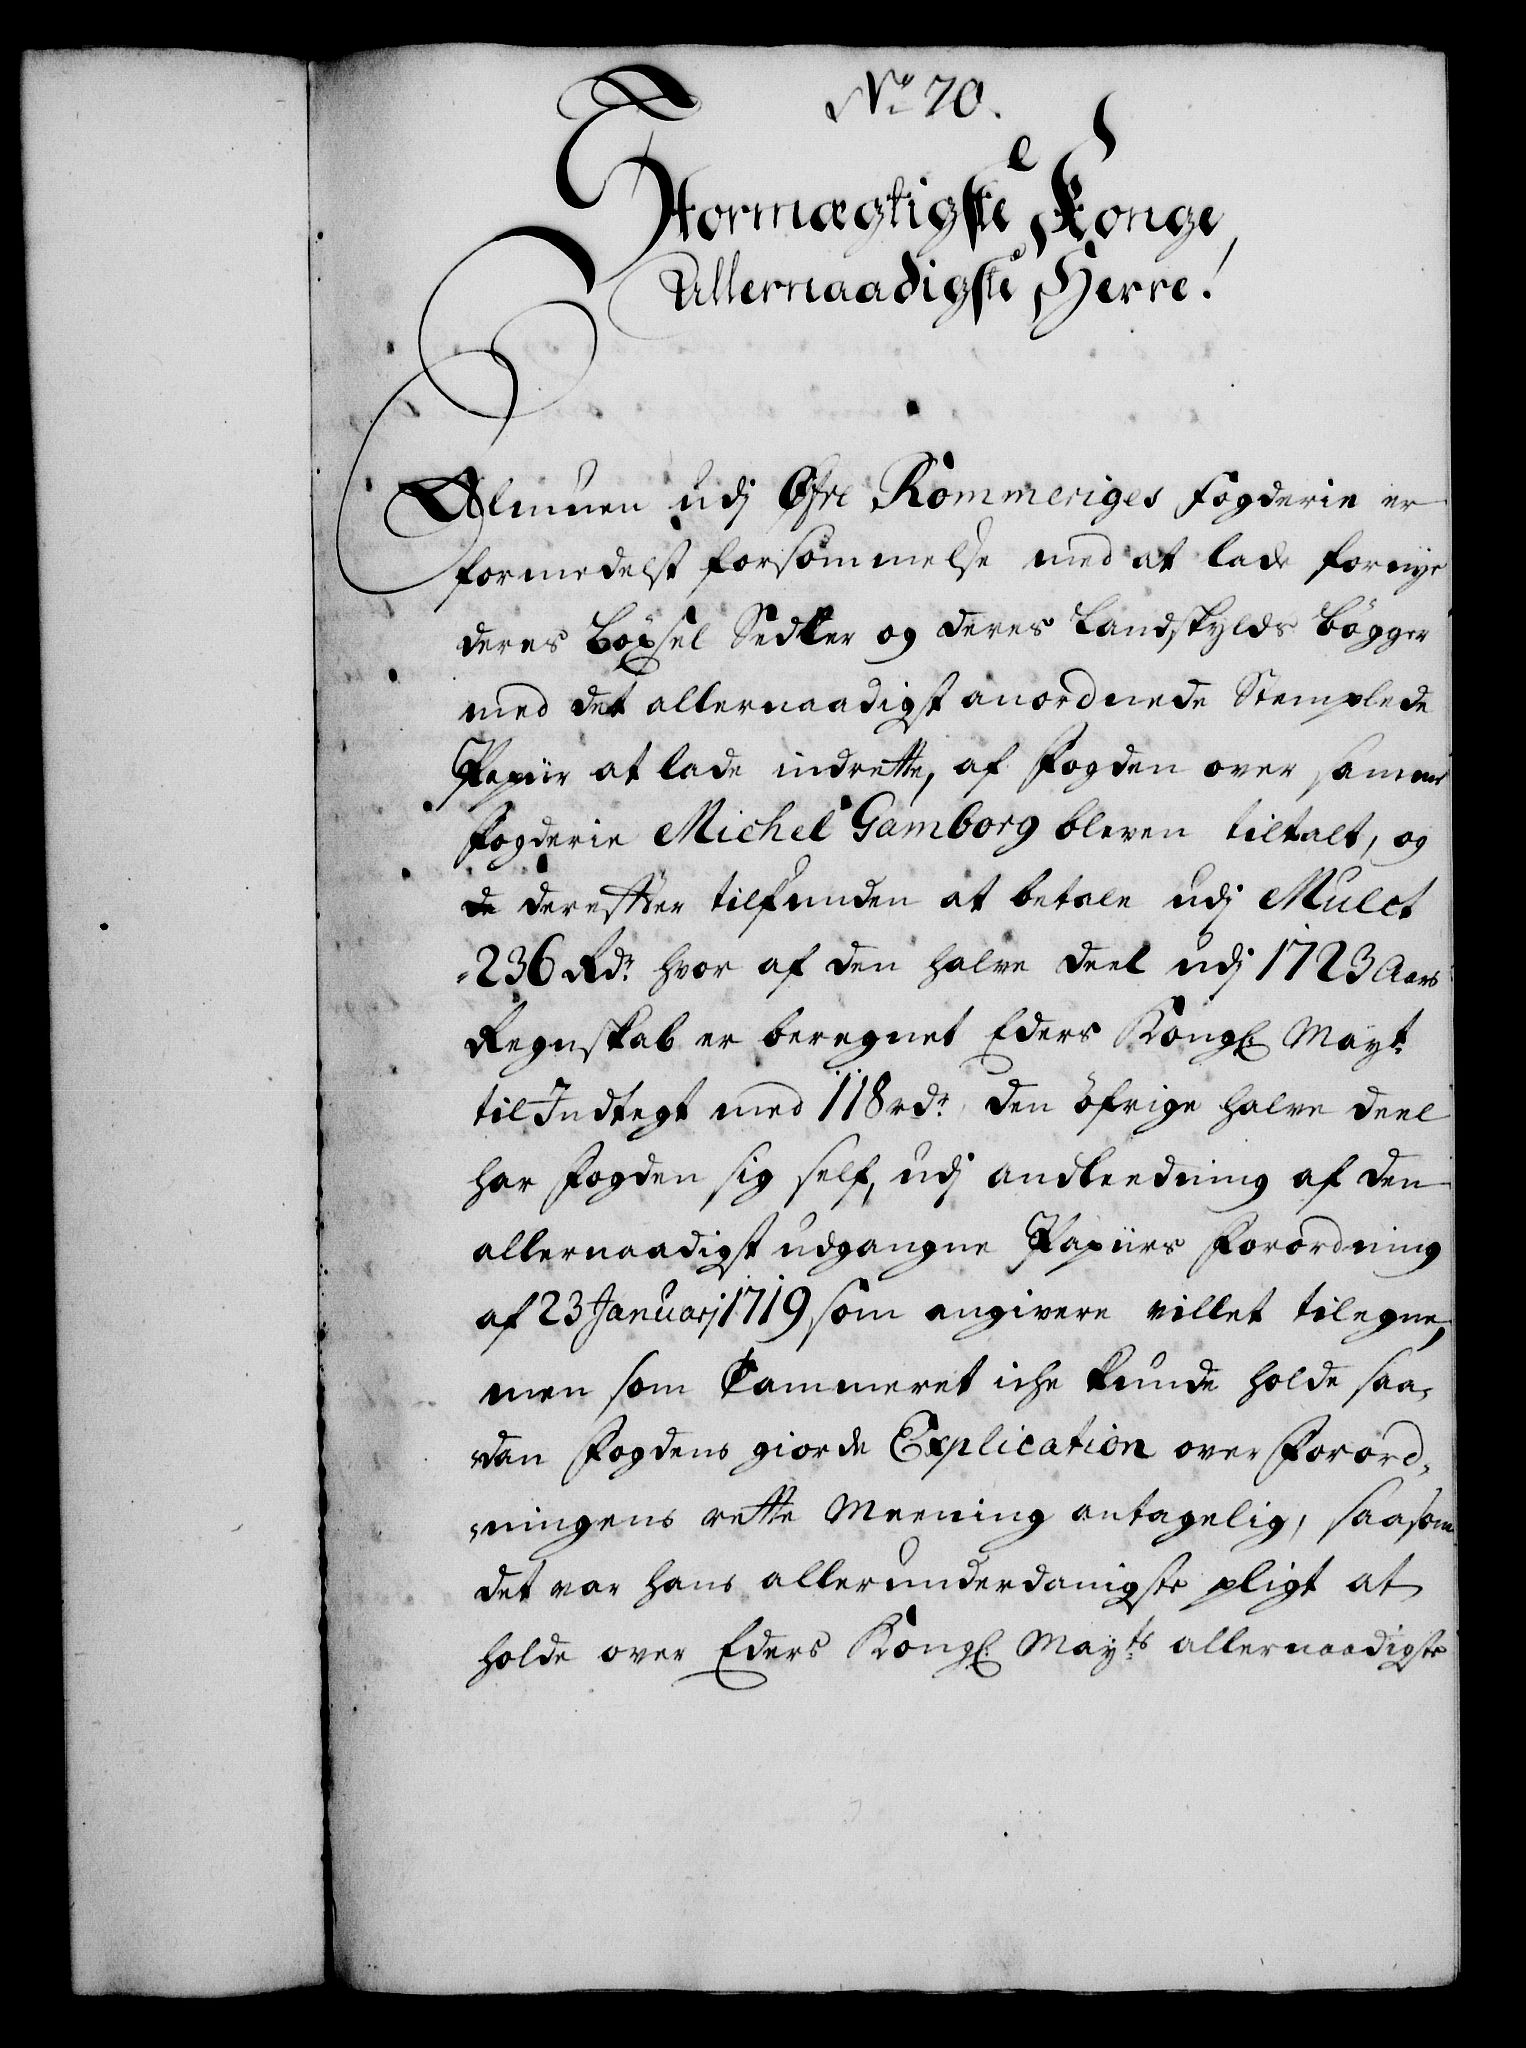 No 70.
Stormægtigste Konge,
Allernaadigste Herre!
Almuen udj Øfre Rommeriges Fogderie er
formedelst forsømmelse med at lade fornye
deres Böxsel Sedler og deres Landskylds Bøgger
med det allernaadigst anordnede Stemplede
Papiir at lade indrette, af Fogden over samme
Fogderie Michel Gamborg bleven tiltalt, og
de derefter tilfunden at betale udj Mulct
236 Rdr. hvor af den halve deel udj 1723 Aars
Regnskab er beregnet Eders Kongl. Mayt.
til Indtegt med 118 rdr. den öfrige halve deel
har Fogden sig self, udj andleedning af den
allernaadigst udgangne Papiirs Forordning
af 23 Januarj 1719 som angivere villet tilegne,
men som Cammeret iche kunde holde saa-
dan Fogdens giorde Explication over Forord-
ningens rette Meening antagelig, saasom
det var hans allerunderdanigste pligt at
holde over Eders Kongl. Mayts. allernaadigste